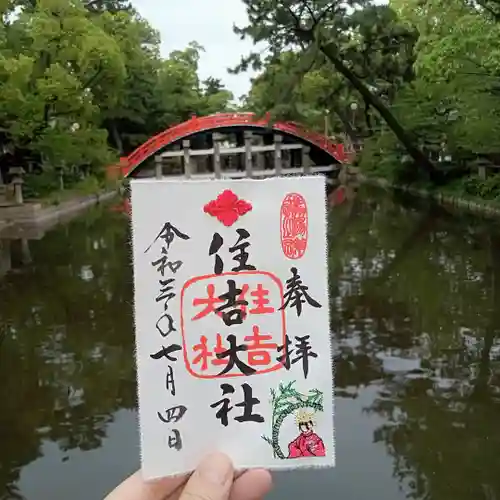 奉拝
住吉大社
住吉大社
令和三年七月四日